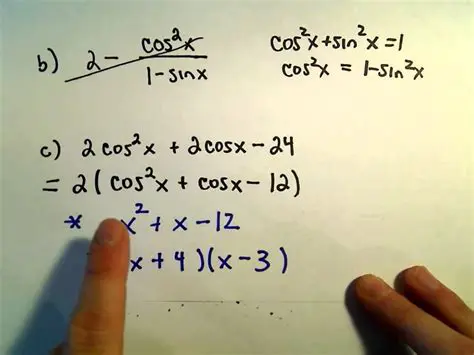 b) 2 - cos²x / 1-sinx
cos²x+sin²x=1
cos²x = 1-sin²x
c) 2cos²x + 2cosx-24
= 2(cos²x + cosx-12)
* x² + x -12
x + 4)(x-3)